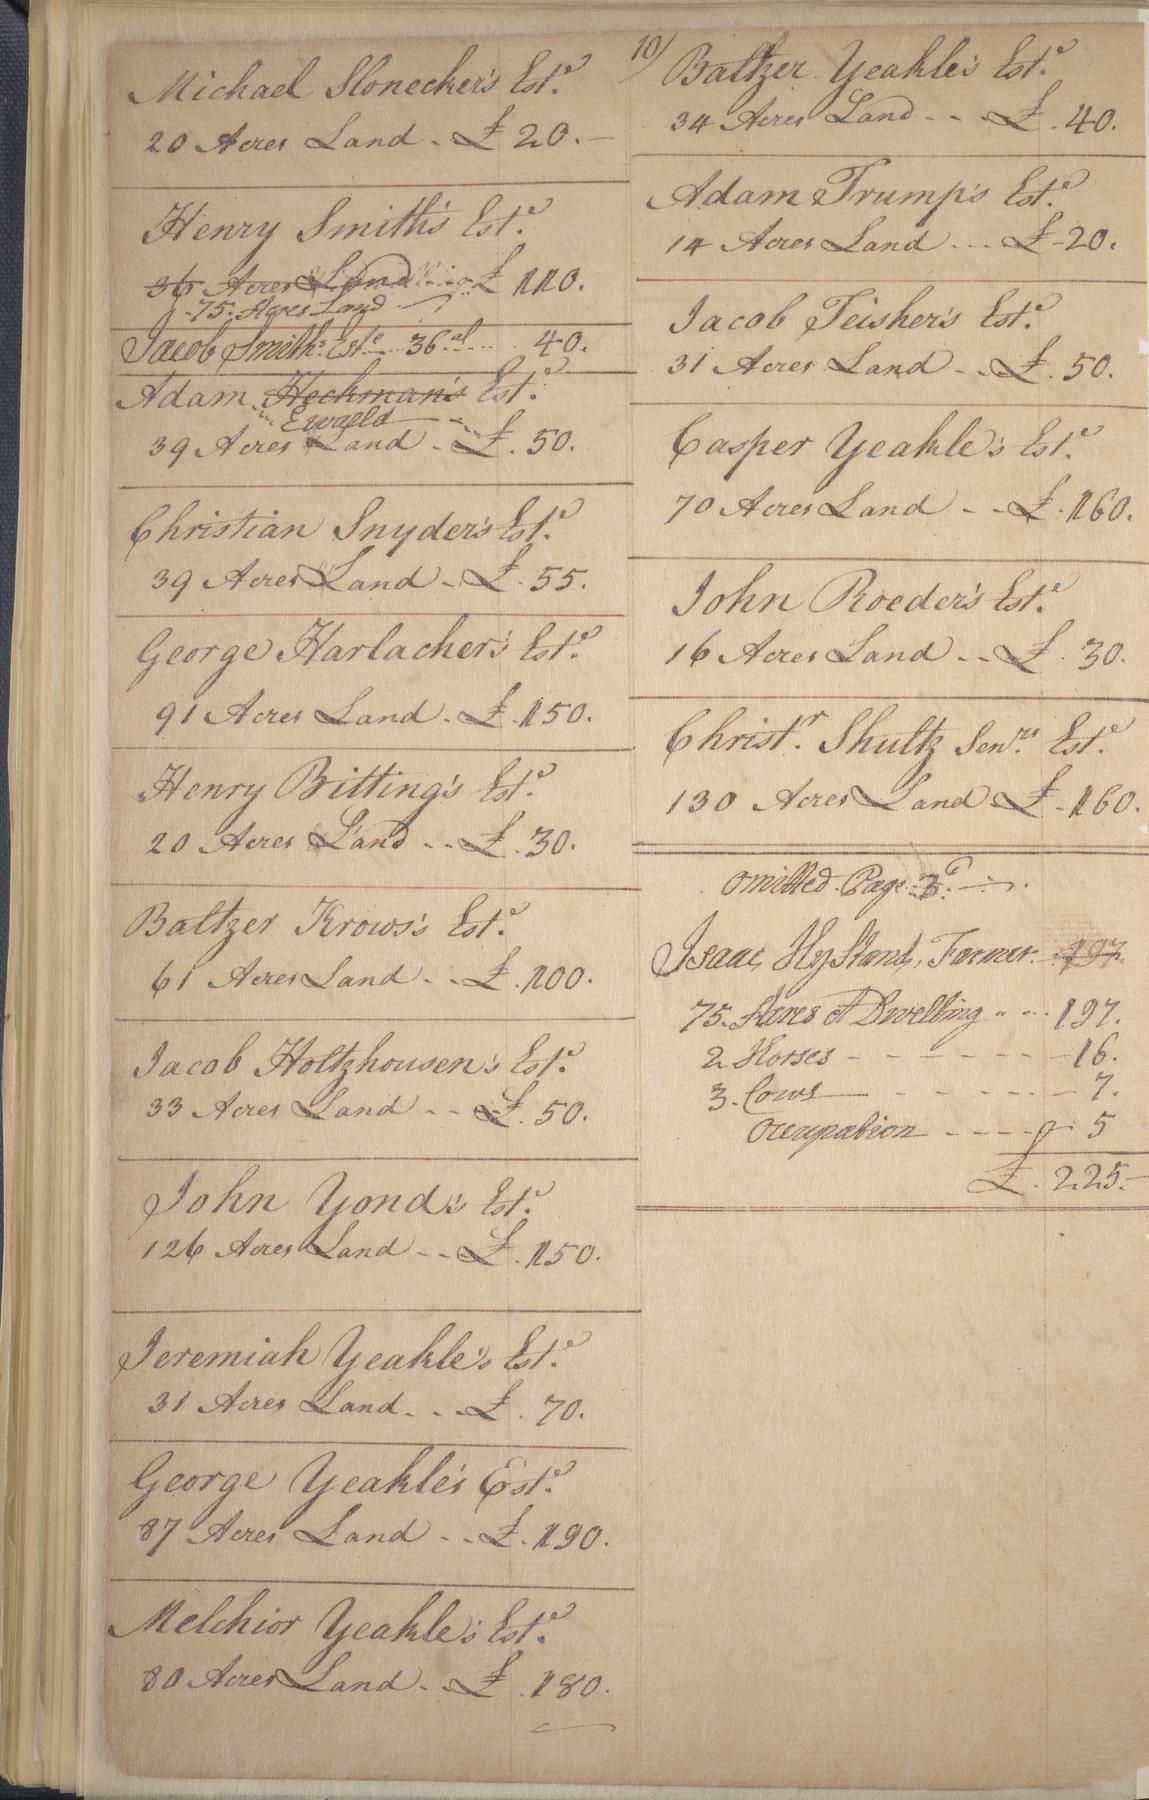 Michael Slonecker's Est.e
20 Acres Land - £ 20.-
Henry Smith's Est.e
36 Acres Land £ 110.
75. Acres Land
Jacob Smith's Est.e 36 al ... 40.
Adam Heckman's Est.e
Ewald
39 Acres Land - £. 50.
Christian Snyder's Est.e
39 Acres Land - £. 55.
George Harlacher's Est.e
91 Acres Land - £. 150.
Henry Bitting's Est.e
20 Acres Land - - £. 30.
Baltzer Krows's Est.e
61 Acres Land - - £. 100.
Jacob Holtzhousen's Est.e
33 Acres Land - - £. 50.
John Yond's Est.e
126 Acres Land - - £. 150.
Jeremiah Yeakle's Est.e
31 Acres Land - - £. 70.
George Yeakle's Est.e
87 Acres Land - - £. 190.
Melchior Yeakle's Est.e
80 Acres Land - - £. 180.
10/
Baltzer Yeakle's Est.e
34 Acres Land - - £. 40.
Adam Trump's Est.e
14 Acres Land - - - £ 20.
Jacob Teisher's Est.e
31 Acres Land - - £. 50.
Casper Yeakle's Est.e
70 Acres Land - - £. 160.
John Roeder's Est.e
16 Acres Land - - £. 30.
Christ.r Shultz Sen.rs Est.e
130 Acres Land £ - 160.
omitted Page 3.d
Isaac Hystand, Farmer. 197.
75. Acres & Dwelling - - - 197.
2 Horses - - - - - - - 16.
3. Cows - - - - - - 7.
Occupation - - - - 5
£. 225.-